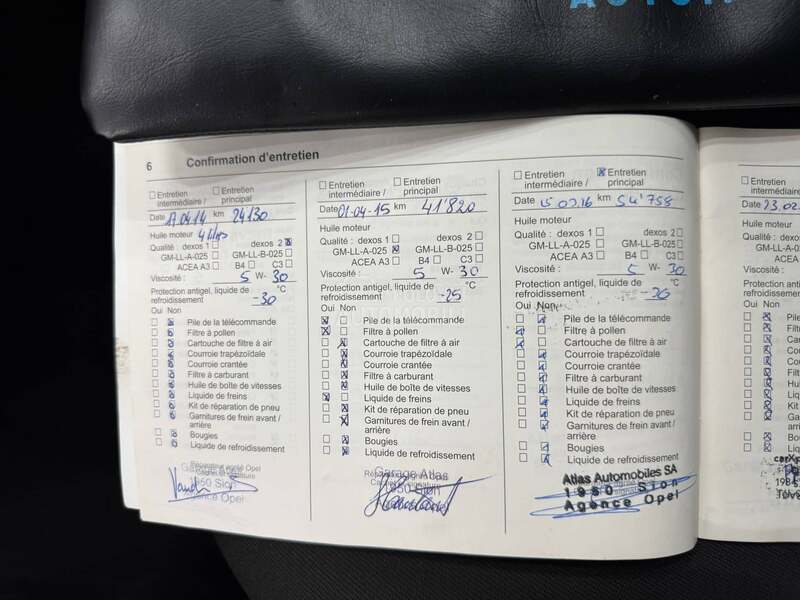 6 Confirmation d'entretien
Entretien intermédiaire / Entretien principal
Date 17.04.14 km 24130
Huile moteur 4 litres
Qualité : dexos 1 dexos 2
GM-LL-A-025 GM-LL-B-025
ACEA A3 B4 C3
Viscosité : 5 W- 30
Protection antigel, liquide de refroidissement -30 °C
Oui Non
Pile de la télécommande
Filtre à pollen
Cartouche de filtre à air
Courroie trapézoïdale
Courroie crantée
Filtre à carburant
Huile de boîte de vitesses
Liquide de freins
Kit de réparation de pneu
Garnitures de frein avant /
arrière
Bougies
Liquide de refroidissement
1950 Sion
Agence Opel
Entretien intermédiaire / Entretien principal
Date 01-04-15 km 41'820
Huile moteur
Qualité : dexos 1 dexos 2
GM-LL-A-025 GM-LL-B-025
ACEA A3 B4 C3
Viscosité : 5 W- 30
Protection antigel, liquide de refroidissement -25 °C
Oui Non
Pile de la télécommande
Filtre à pollen
Cartouche de filtre à air
Courroie trapézoïdale
Courroie crantée
Filtre à carburant
Huile de boîte de vitesses
Liquide de freins
Kit de réparation de pneu
Garnitures de frein avant /
arrière
Bougies
Liquide de refroidissement
Garage Atlas
1950 Sion
Entretien intermédiaire / Entretien principal
Date 15 02.16 km 54'758
Huile moteur
Qualité : dexos 1 dexos 2
GM-LL-A-025 GM-LL-B-025
ACEA A3 B4 C3
Viscosité : 5 W- 30
Protection antigel, liquide de refroidissement °C
Oui Non
Pile de la télécommande
Filtre à pollen
Cartouche de filtre à air
Courroie trapézoïdale
Courroie crantée
Filtre à carburant
Huile de boîte de vitesses
Liquide de freins
Kit de réparation de pneu
Garnitures de frein avant /
arrière
Bougies
Liquide de refroidissement
Atlas Automobiles SA
1950 Sion
Agence Opel